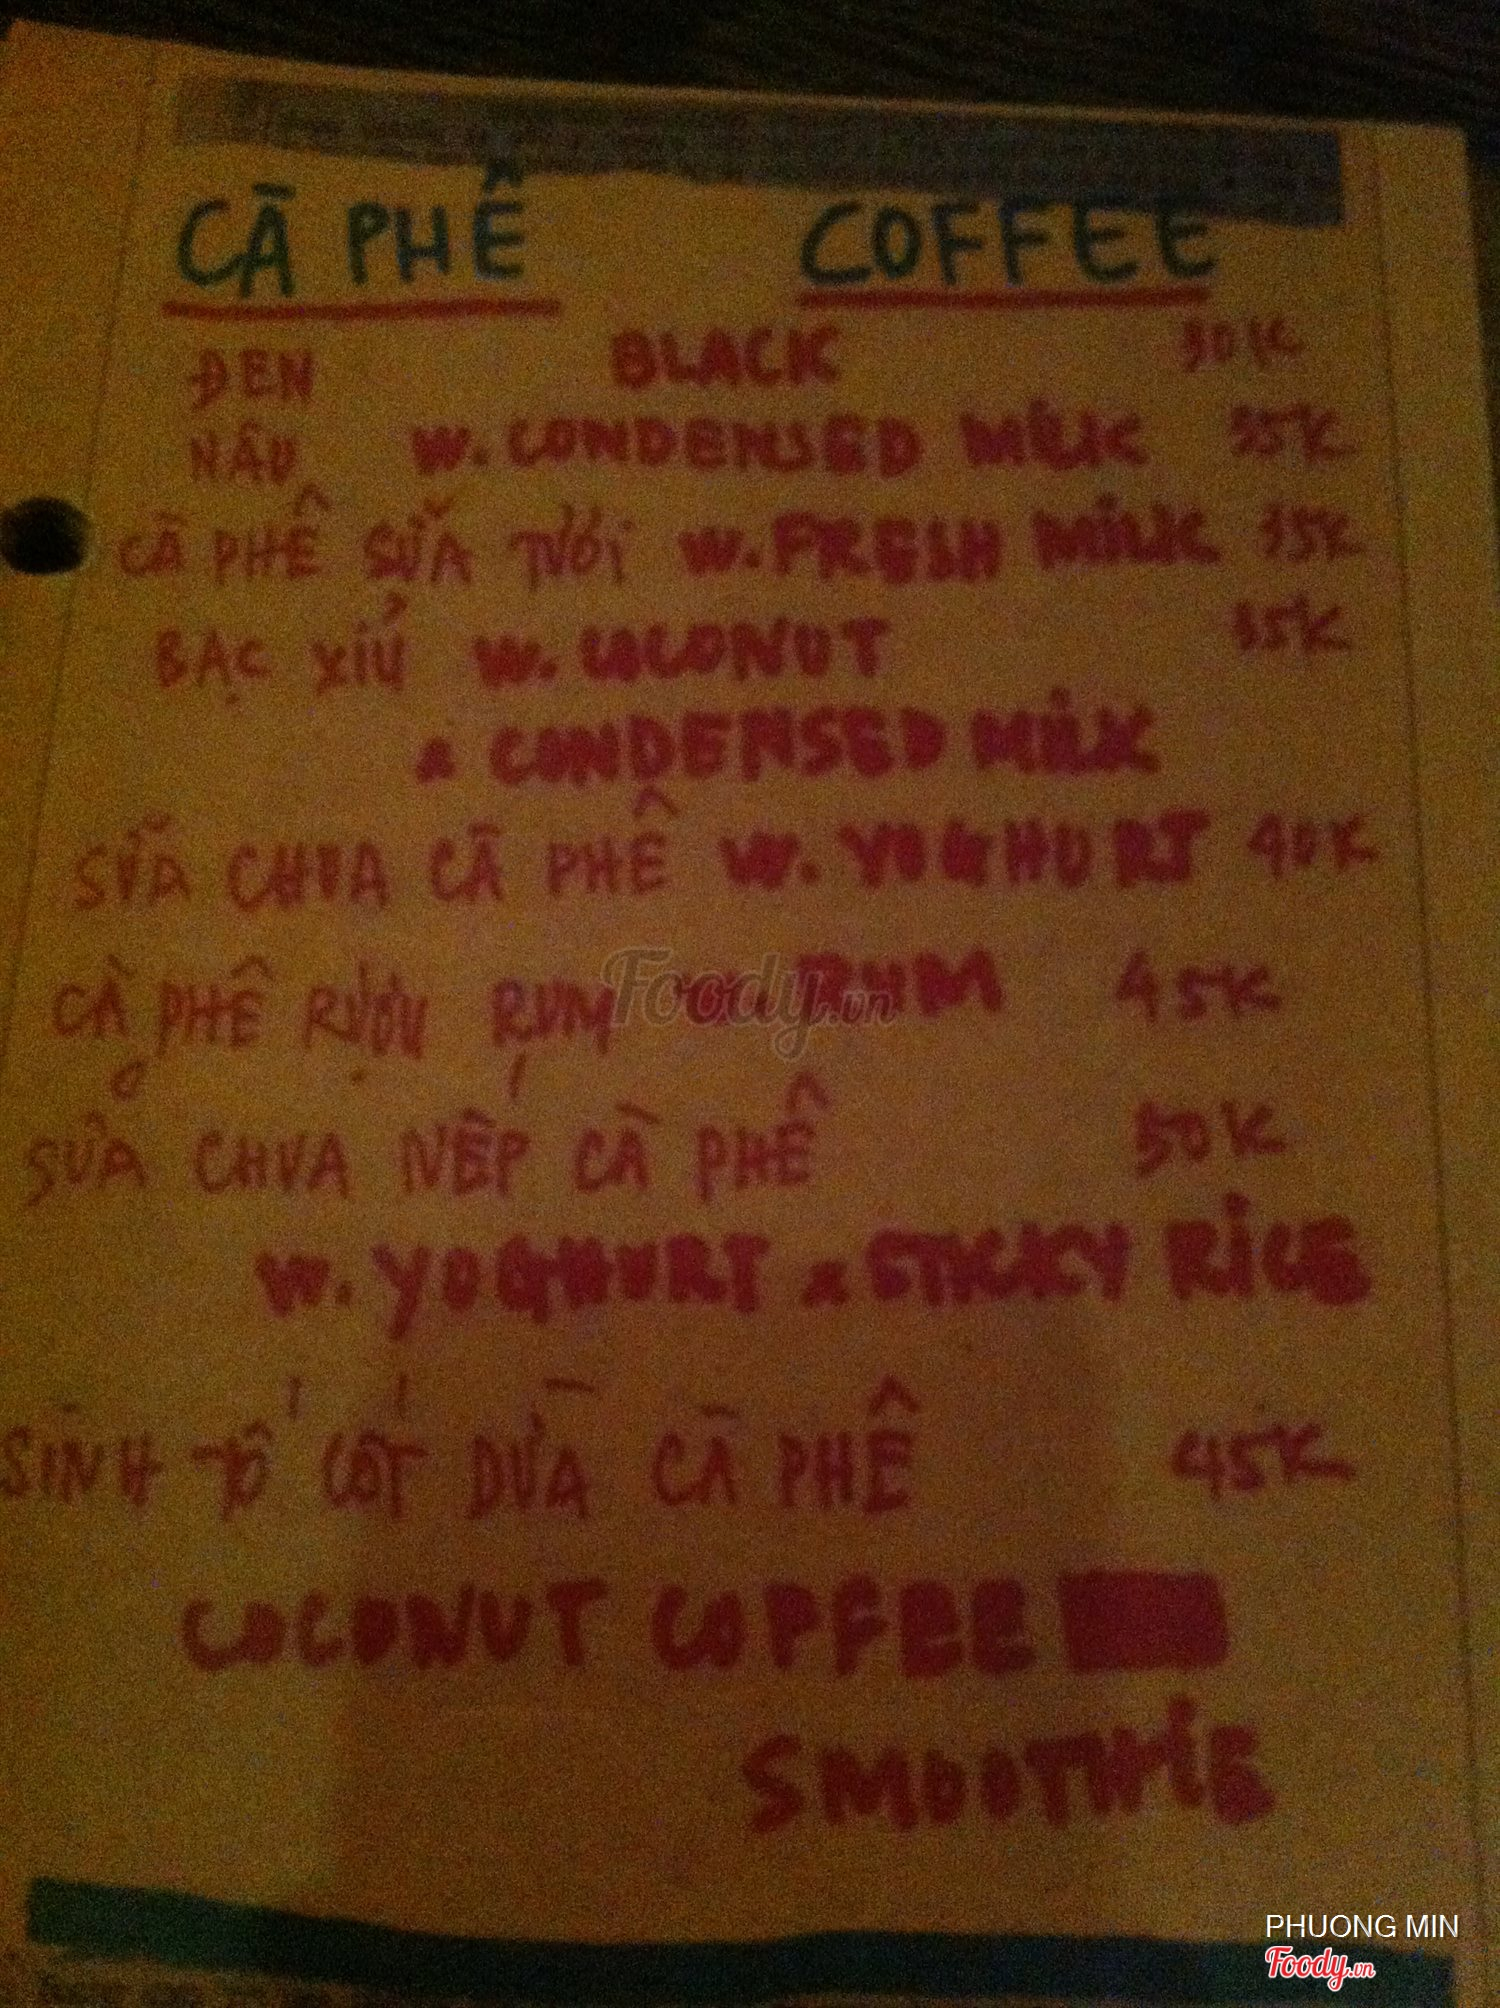 CÀ PHÊ COFFEE
ĐEN BLACK 30K
NÂU W. CONDENSED MILK 35K
CÀ PHÊ SỮA TƯƠI W. FRESH MILK 35K
BẠC XỈU W. COCONUT 35K
& CONDENSED MILK
SỮA CHUA CÀ PHÊ W. YOGHURT 40K
CÀ PHÊ RƯỢU RUM W. RUM 45K
SỮA CHUA NẾP CÀ PHÊ 50K
W. YOGHURT & STICKY RICE
SINH TỐ CỐT DỪA CÀ PHÊ 45K
COCONUT COFFEE
SMOOTHIE
Foody.vn
PHUONG MIN
Foody.vn